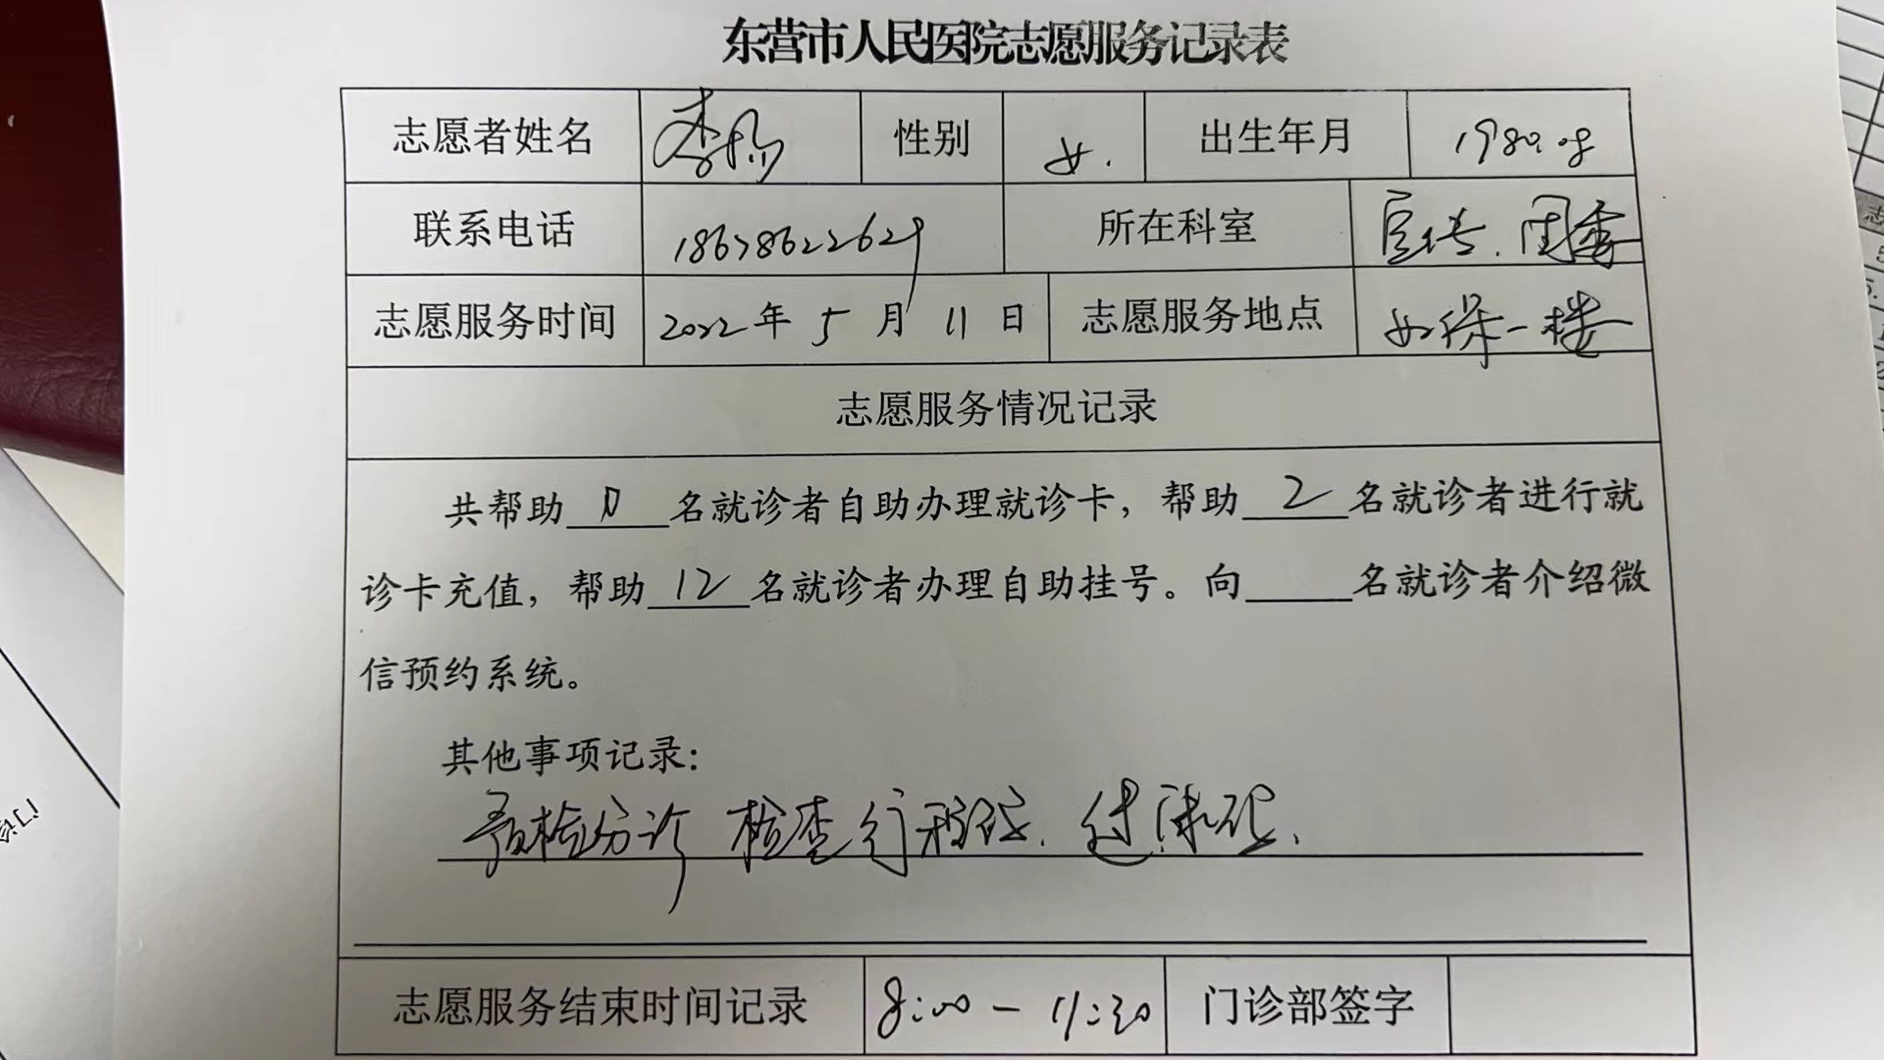 东营市人民医院志愿服务记录表
志愿者姓名 李杨 性别 女. 出生年月 1980.08
联系电话 18678622629 所在科室 宣传.团委
志愿服务时间 2022年 5 月 11 日 志愿服务地点 妇保一楼
志愿服务情况记录
共帮助 名就诊者自助办理就诊卡，帮助 2 名就诊者进行就
诊卡充值，帮助 12 名就诊者办理自助挂号。向____名就诊者介绍微
信预约系统。
其他事项记录：
预检分诊 检查行程码.
志愿服务结束时间记录 8:00－11:30 门诊部签字